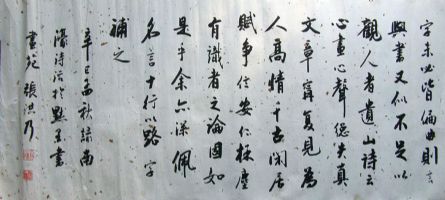 字未必皆偏曲則言
與書又似不足以
觀人者遺山詩云
心畫心聲總失真
文章寧復見為
人高情千古閒居
賦爭信安仁拜塵
有識者之論固如
是乎余亦深佩
名言十行以路字
補之
辛巳秋錄南
濠詩話於墨書
畫苑張洪